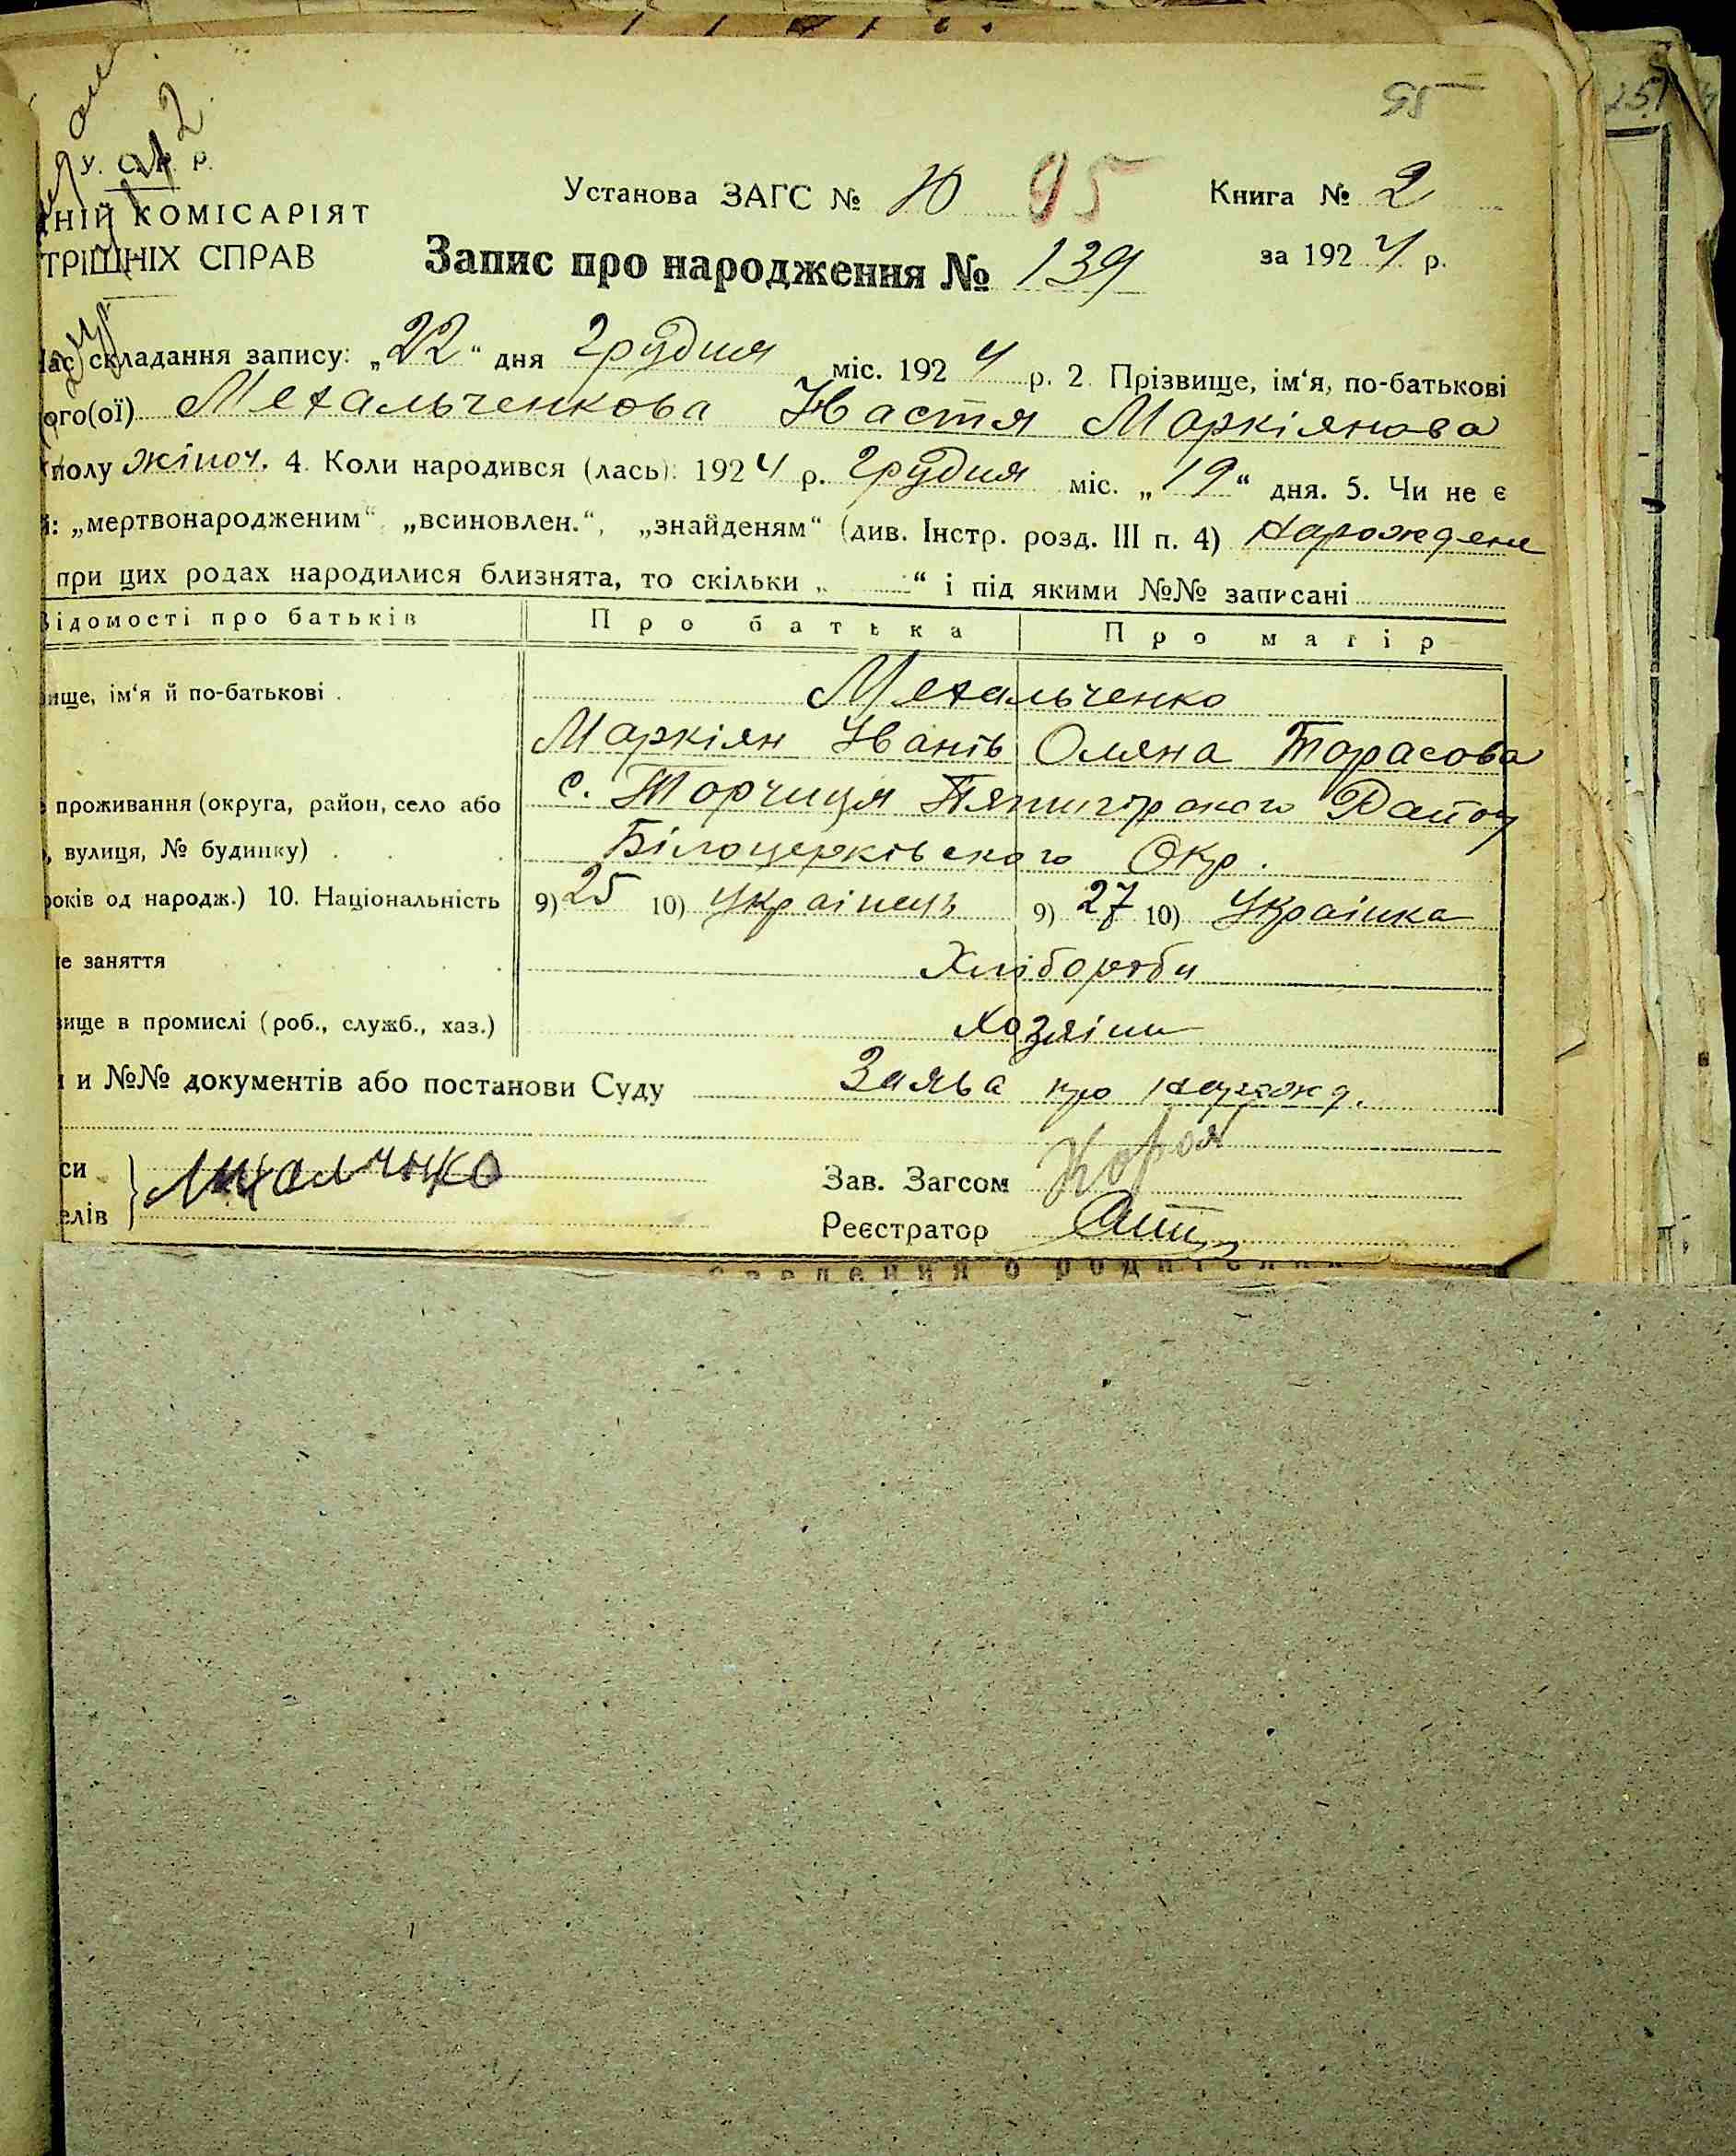 95
У. С. Р. Р.
Установа ЗАГС № 10 95 Книга № 2
НІЙ КОМІСАРІЯТ
ТРІШНІХ СПРАВ
Запис про народження № 139 за 1924 р.
Час складання запису: „22" дня Грудня міс. 1924 р. 2. Прізвище, ім'я, по-батькові
ого(ої) Мехальченкова Настя Маркіянова
полу жіноч. 4. Коли народився (лась): 1924 р. Грудня міс. „19" дня. 5. Чи не є
: „мертвонародженим" „всиновлен.", „знайденям" (див. Інстр. розд. III п. 4) Нарождене
при цих родах народилися близнята, то скільки „ " і під якими №№ записані
Відомості про батьків Про батька Про матір
вище, ім'я й по-батькові Мехальченко
Маркіян Іванів Оляна Тарасова
проживання (округа, район, село або с. Торчиця Пятигірського Району
, вулиця, № будинку) Білоцерківського Окр.
років од народж.) 10. Національність 9) 25 10) Українець 9) 27 10) Українка
е заняття Хлібороби
вище в промислі (роб., служб., хаз.) Хозяїни
и №№ документів або постанови Суду Заява про нарожд.
си Михальченко Зав. Загсом
елів Реєстратор